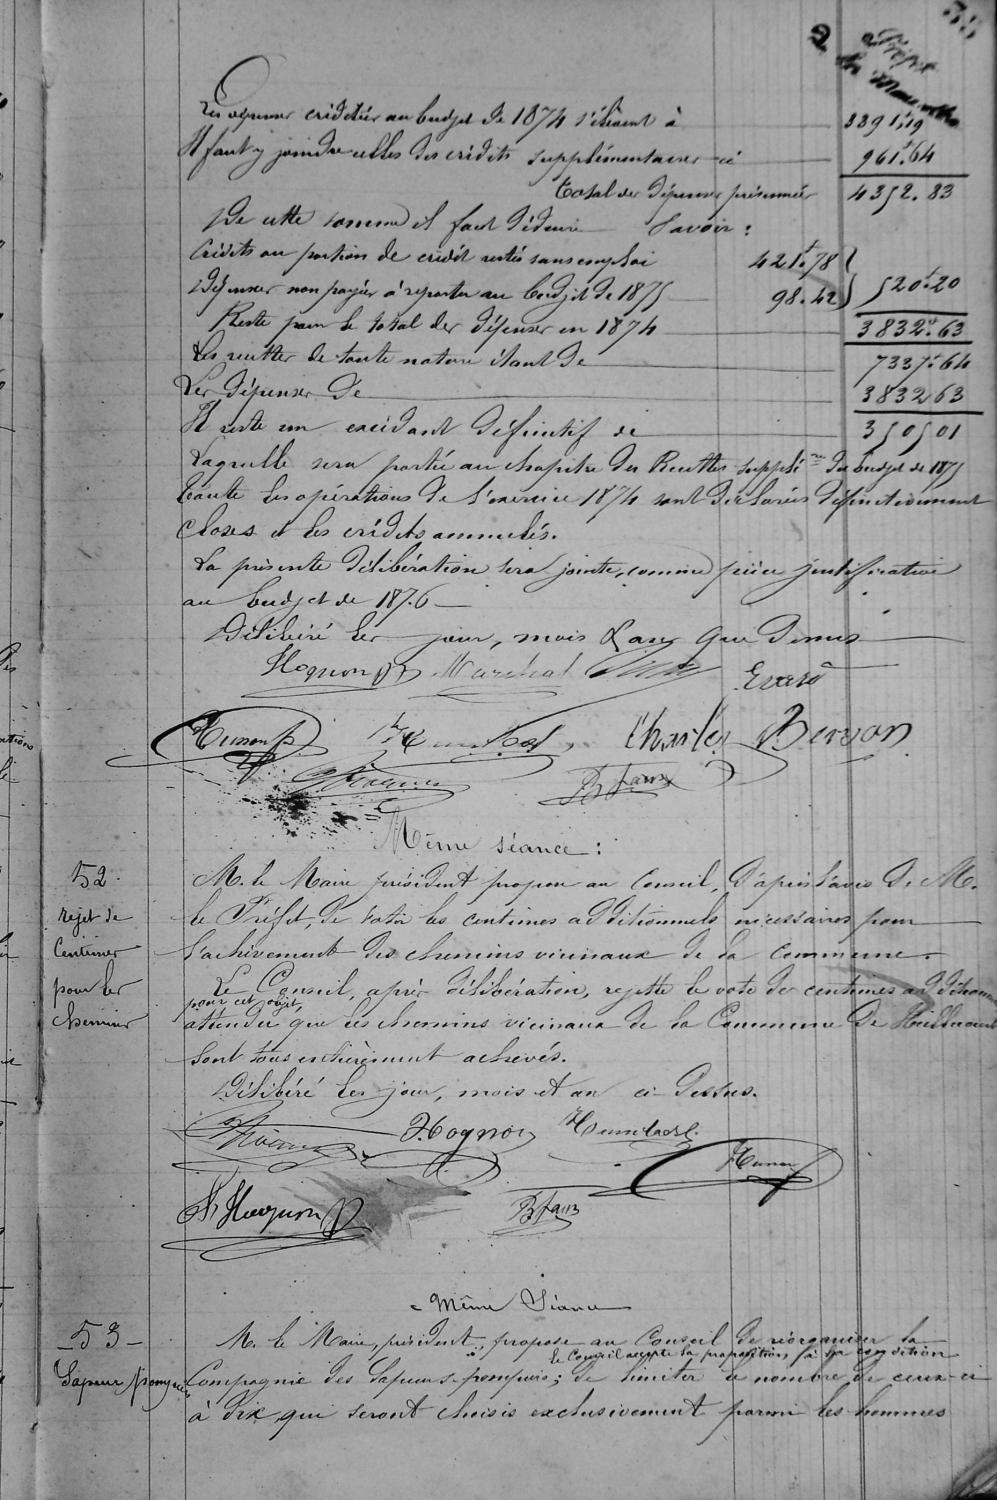 Les dépenses créditées au budget de 1874 s'élèvent à 3391.19
Il faut y joindre celles des crédits supplémentaires ci 961.64
Total des dépenses présumées 4352.83
De cette somme il faut déduire Savoir :
Crédits ou portion de crédit restés sans emploi 421.78
Dépenses non payées à reporter au budget de 1875 98.42 520.20
Reste pour le total des dépenses en 1874 3832.63
Les recettes de toute nature étant de 7337.64
Les dépenses de 3832 63
Il reste un excédant définitif de 3505 01
Laquelle sera portée au chapitre des Recettes supplé res du budget de 1875
Toute les opérations de l'exercice 1874 sont déclarées définitivement
closes et les crédits annulés.
La présente délibération sera jointe, comme pièce justificative
au budget de 1876
Délibéré les jour, mois & an que dessus
Hognon Maréchal Evard
Husson Humbert Charles Bervon
B Faux
Même séance :
52.
rejet de
Centimes
pour les
chemins
M. le Maire président propose au Conseil, d'après l'avis de M.
le Préfet, de voter les centimes additionnels nécessaires pour
l'achèvement des chemins vicinaux de la commune.
Le Conseil, après délibération, rejette le vote de centimes additionnels
pour cet objet,
attendu que les chemins vicinaux de la Commune de
sont tous entièrement achevés.
Délibéré les jour, mois et an ci-dessus.
Hognon Humbert
Husson
Hognon B Faux
Même Séance
53
Sapeurs Pompiers
M. le Maire, président, propose au Conseil de réorganiser la
le Conseil accepte la proposition à la condition
Compagnie des Sapeurs-pompiers ; de limiter le nombre de ceux-ci
à dix qui seront choisis exclusivement parmi les hommes